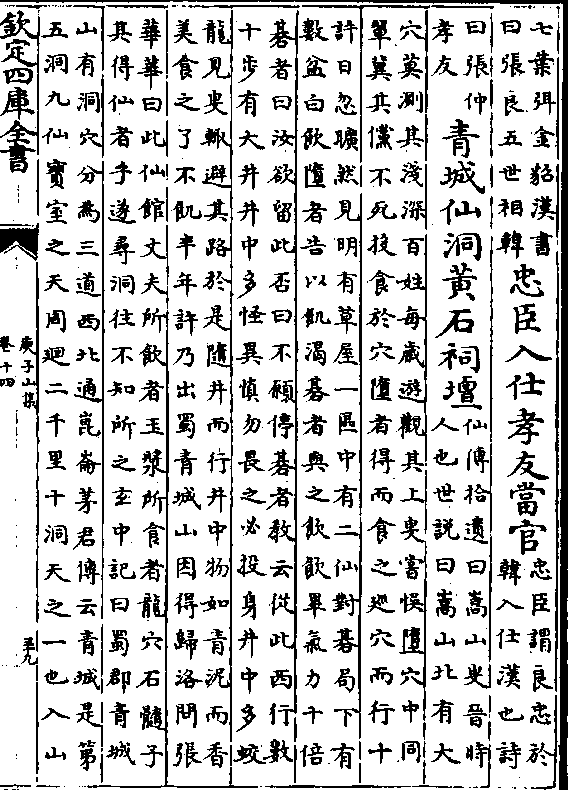 七葉弭金貂漢書
曰張良五世相韓
忠臣入仕孝友當官
忠臣謂良忠於
韓入仕漢也詩
曰張仲
孝友
青城仙洞黄石祠壇
仙傳拾遺曰嵩山叟晉時
人也世説曰嵩山北有大
穴莫測其淺深百姓每歲遊觀其上叟嘗悮墮穴中同
輩冀其儻不死投食於穴墮者得而食之廵穴而行十
許日忽曠然見明有草屋一區中有二仙對碁局下有
數盆白飲墮者告以飢渴碁者與之飲飲畢氣力十倍
碁者曰汝欲留此否曰不願停碁者教云從此西行數
十步有大井井中多怪異慎勿畏之必投身井中多蛟
龍見叟輙避其路於是隨井而行井中物如青泥而香
美食之了不飢半年許乃出蜀青城山因得歸洛問張
華華曰此仙館丈夫所飲者玉漿所食者龍穴石髓子
其得仙者乎遂尋洞往不知所之玄中記曰蜀郡青城
山有洞穴分為三道西北通崑崙茅君傳云青城是第
五洞九仙寳室之天周廻二千里十洞天之一也入山
欽定四庫全書
庾子山集
卷十四
五九